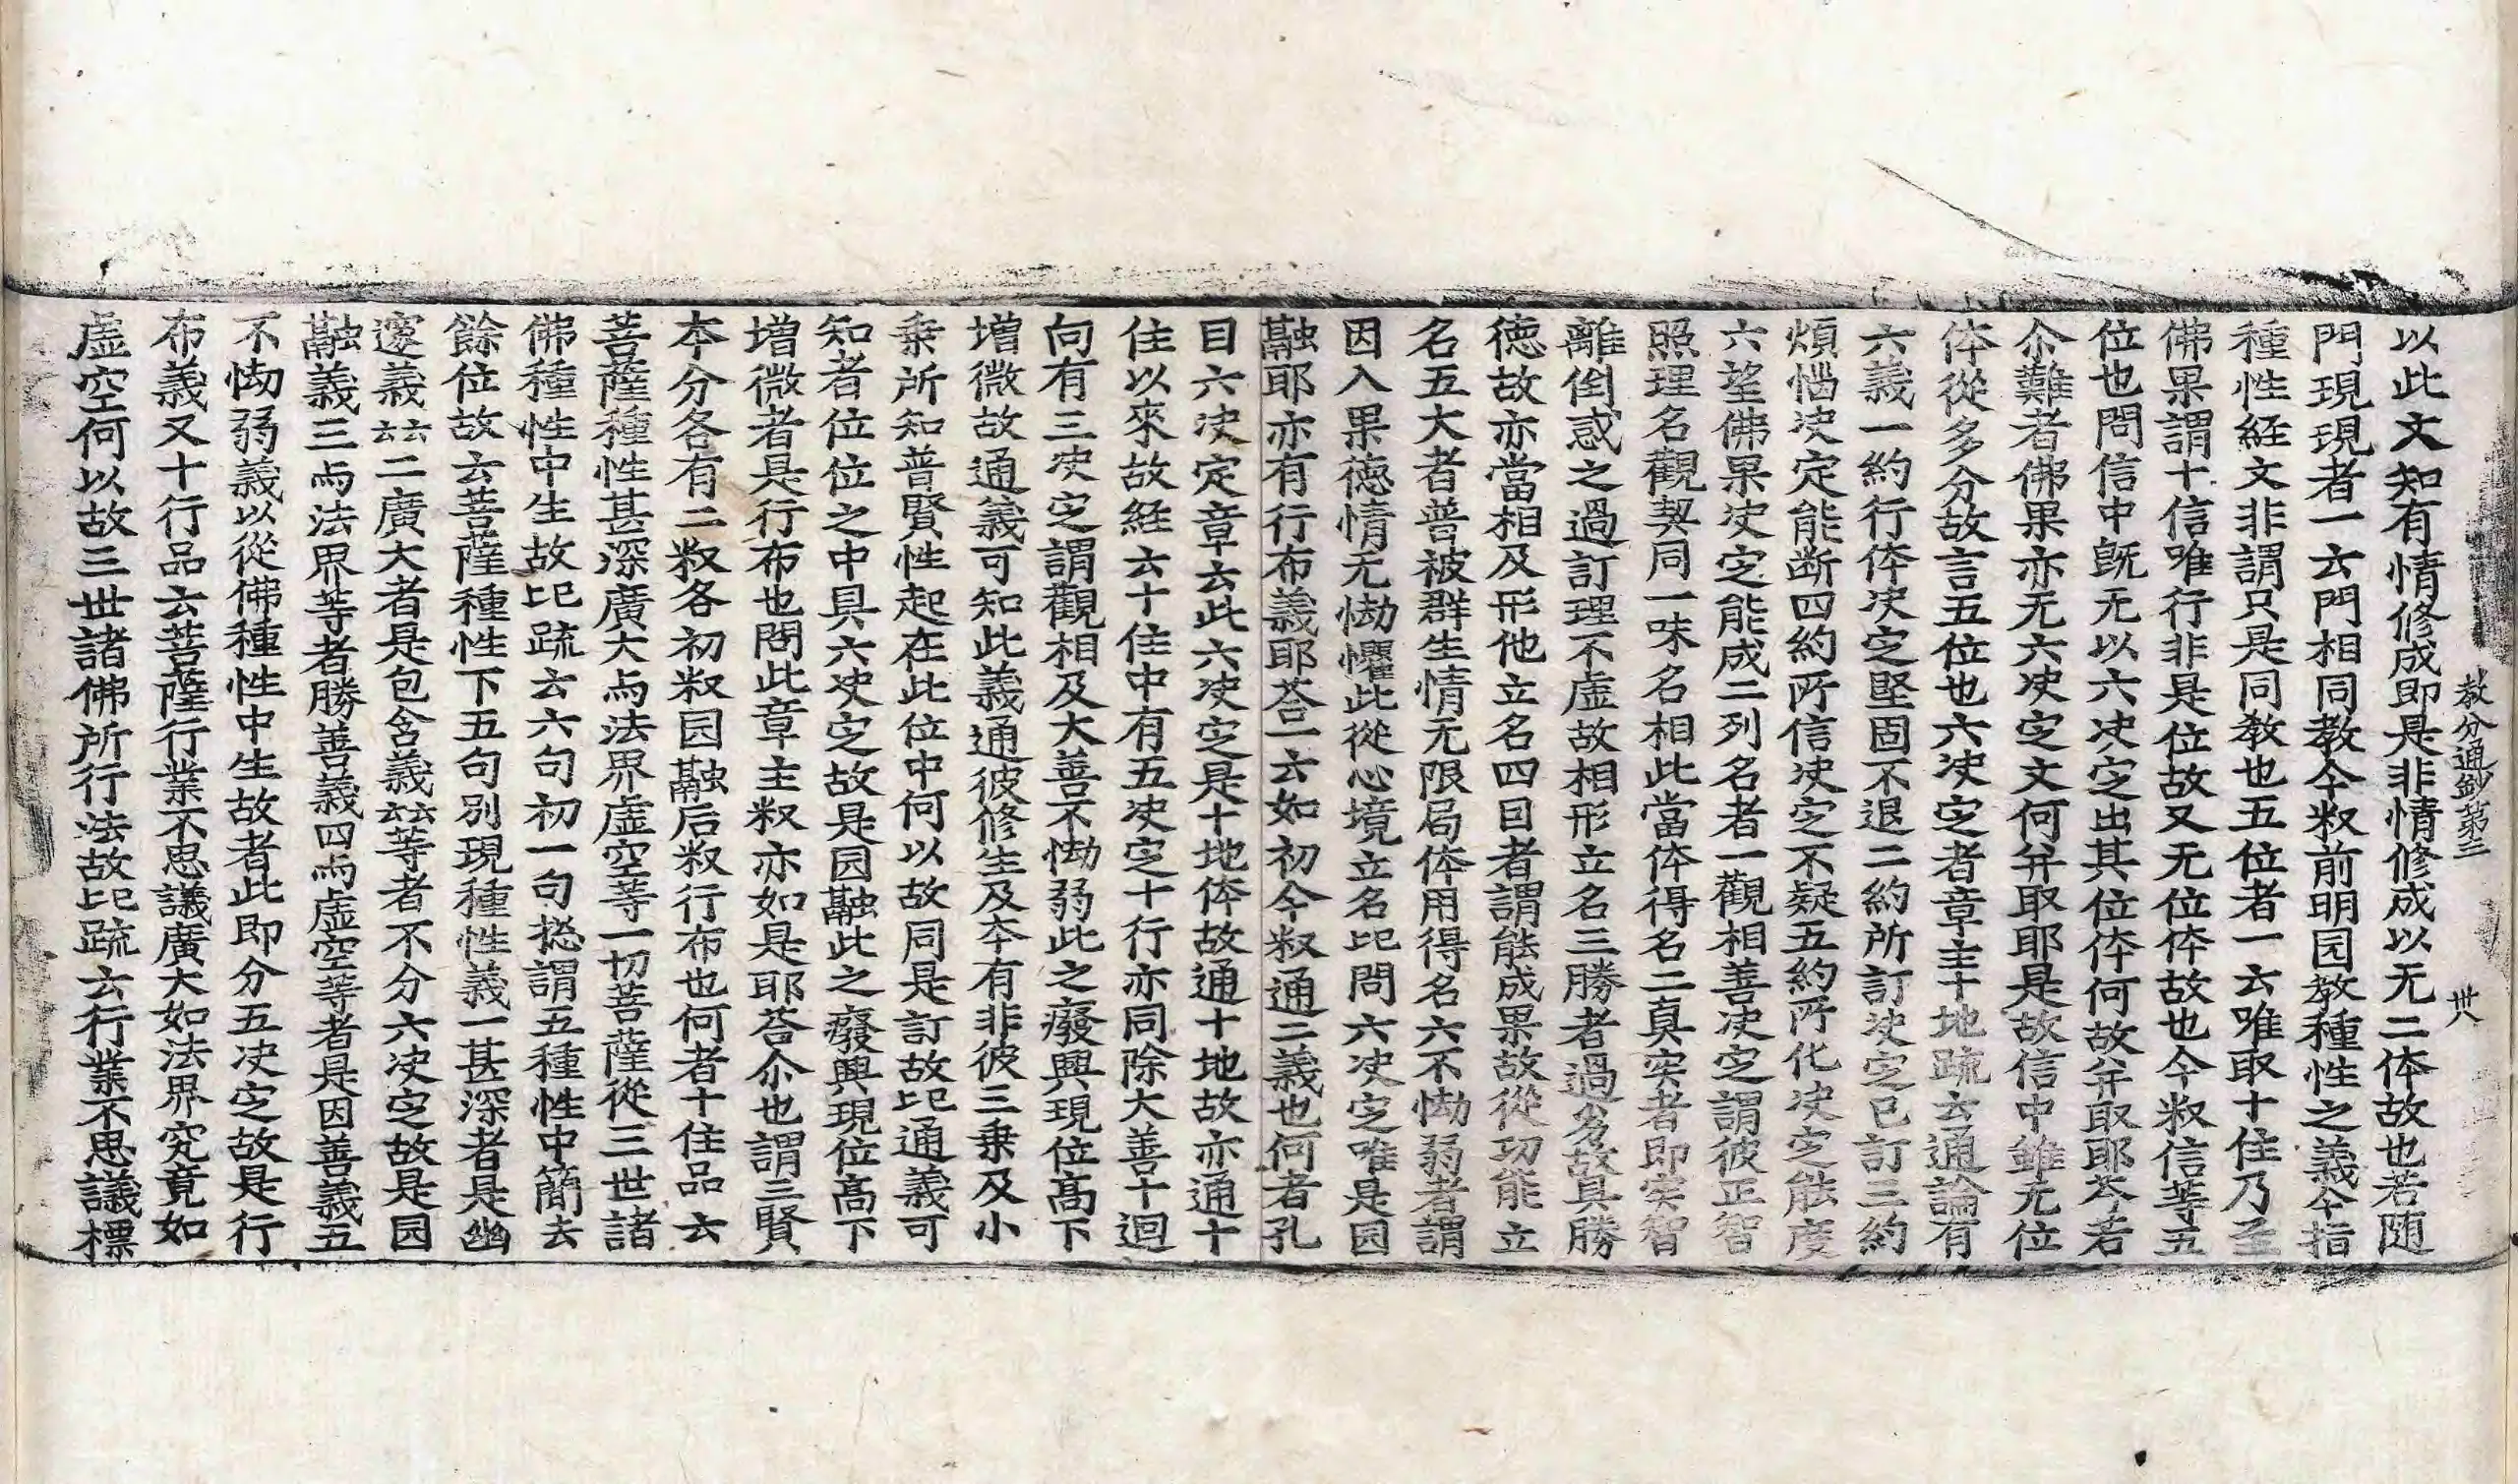 教分通鈔第三　卅八
以此文知有情修成即是非情修成以无二体故也若随
門現現者一云門相同教今釈前明园教種性之義今指
種性経文非謂只是同教也五位者一云唯取十住乃至
佛果謂十信唯行非是位故又无位体故也今釈信等五
位也問信中既无以六决定出其位体何故并取耶荅若
尒難者佛果亦无六决定文何并取耶是故信中雖无位
体從多分故言五位也六决定者章主十地疏云通論有
六義一約行体决定堅固不退二約所訂决定已訂三約
煩惱决定能断四約所信决定不疑五約所化决定能度
六望佛果决定能成二列名者一觀相善决定謂彼正智
照理名觀契同一味名相此當体得名二真实者即实智
離倒惑之過訂理不虚故相形立名三勝者過劣故具勝
徳故亦當相及形他立名四因者謂能成果故從功能立
名五大者普被群生情无限局体用得名六不怮弱者謂
因入果徳情无怮懼此從心境立名𠯁問六决定唯是园
融耶亦有行布義耶荅一云如初今釈通二義也何者孔
目六决定章云此六决定是十地体故通十地故亦通十
住以來故経云十住中有五决定十行亦同除大善十迴
向有三决定謂觀相及大善不怮弱此之癈興現位髙下
増微故通義可知此義通彼修生及夲有非彼三乗及小
乗所知普賢性起在此位中何以故同是訂故𠯁通義可
知者位位之中具六决定故是园融此之癈興現位髙下
増微者是行布也問此章主釈亦如是耶荅尒也謂三賢
本分各有二釈各初釈园融后釈行布也何者十住品云
菩薩種性甚深廣大与法界虚空等一切菩薩從三世諸
佛種性中生故𠯁疏云六句初一句揔謂五種性中簡去
餘位故云菩薩種性下五句別現種性義一甚深者是幽
邃義云云二廣大者是包含義云云等者不分六决定故是园
融義三与法界等者勝善義四与虚空等者是因善義五
不怮弱義以從佛種性中生故者此即分五决定故是行
布義又十行品云菩薩行業不思議廣大如法界究竟如
虚空何以故三世諸佛所行法故𠯁疏云行業不思議標